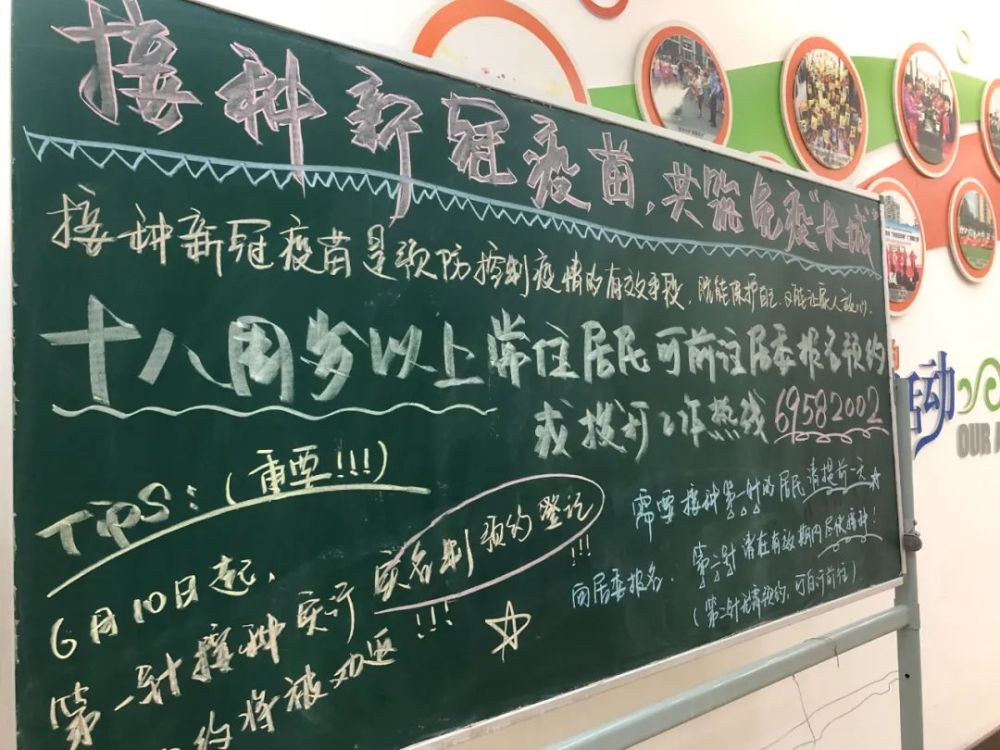 接种新冠疫苗，共筑免疫长城
接种新冠疫苗是预防控制疫情的有效手段，既能保护自己，又能让家人放心。
十八周岁以上常住居民可前往居委报名预约
或拨打工作热线69582002
TiPS：（重要!!!）
6月10日起，
第一针接种实行实名制预约登记!!!
约将被劝返!!!
需要接种第一针的居民请提前一天
向居委报名．
第二针请在有效期内尽快接种！
（第二针无需预约，可自行前往）
活动
OUR